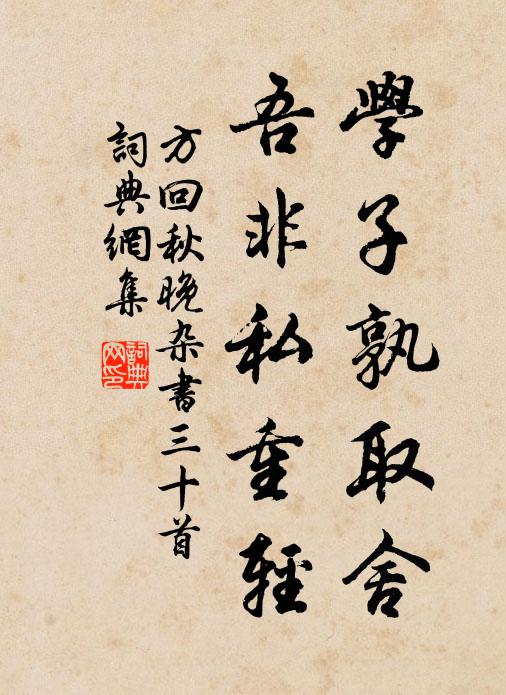 學子孰取舍
吾非私重輕
方回秋晚杂書三十首
詞典網集
詞典網印